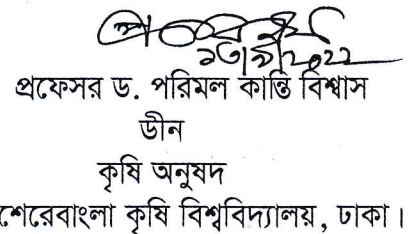 প্রফেসর ড. পরিমল কান্তি বিশ্বাস
ডীন
কৃষি অনুষদ
শেরেবাংলা কৃষি বিশ্ববিদ্যালয়, ঢাকা।